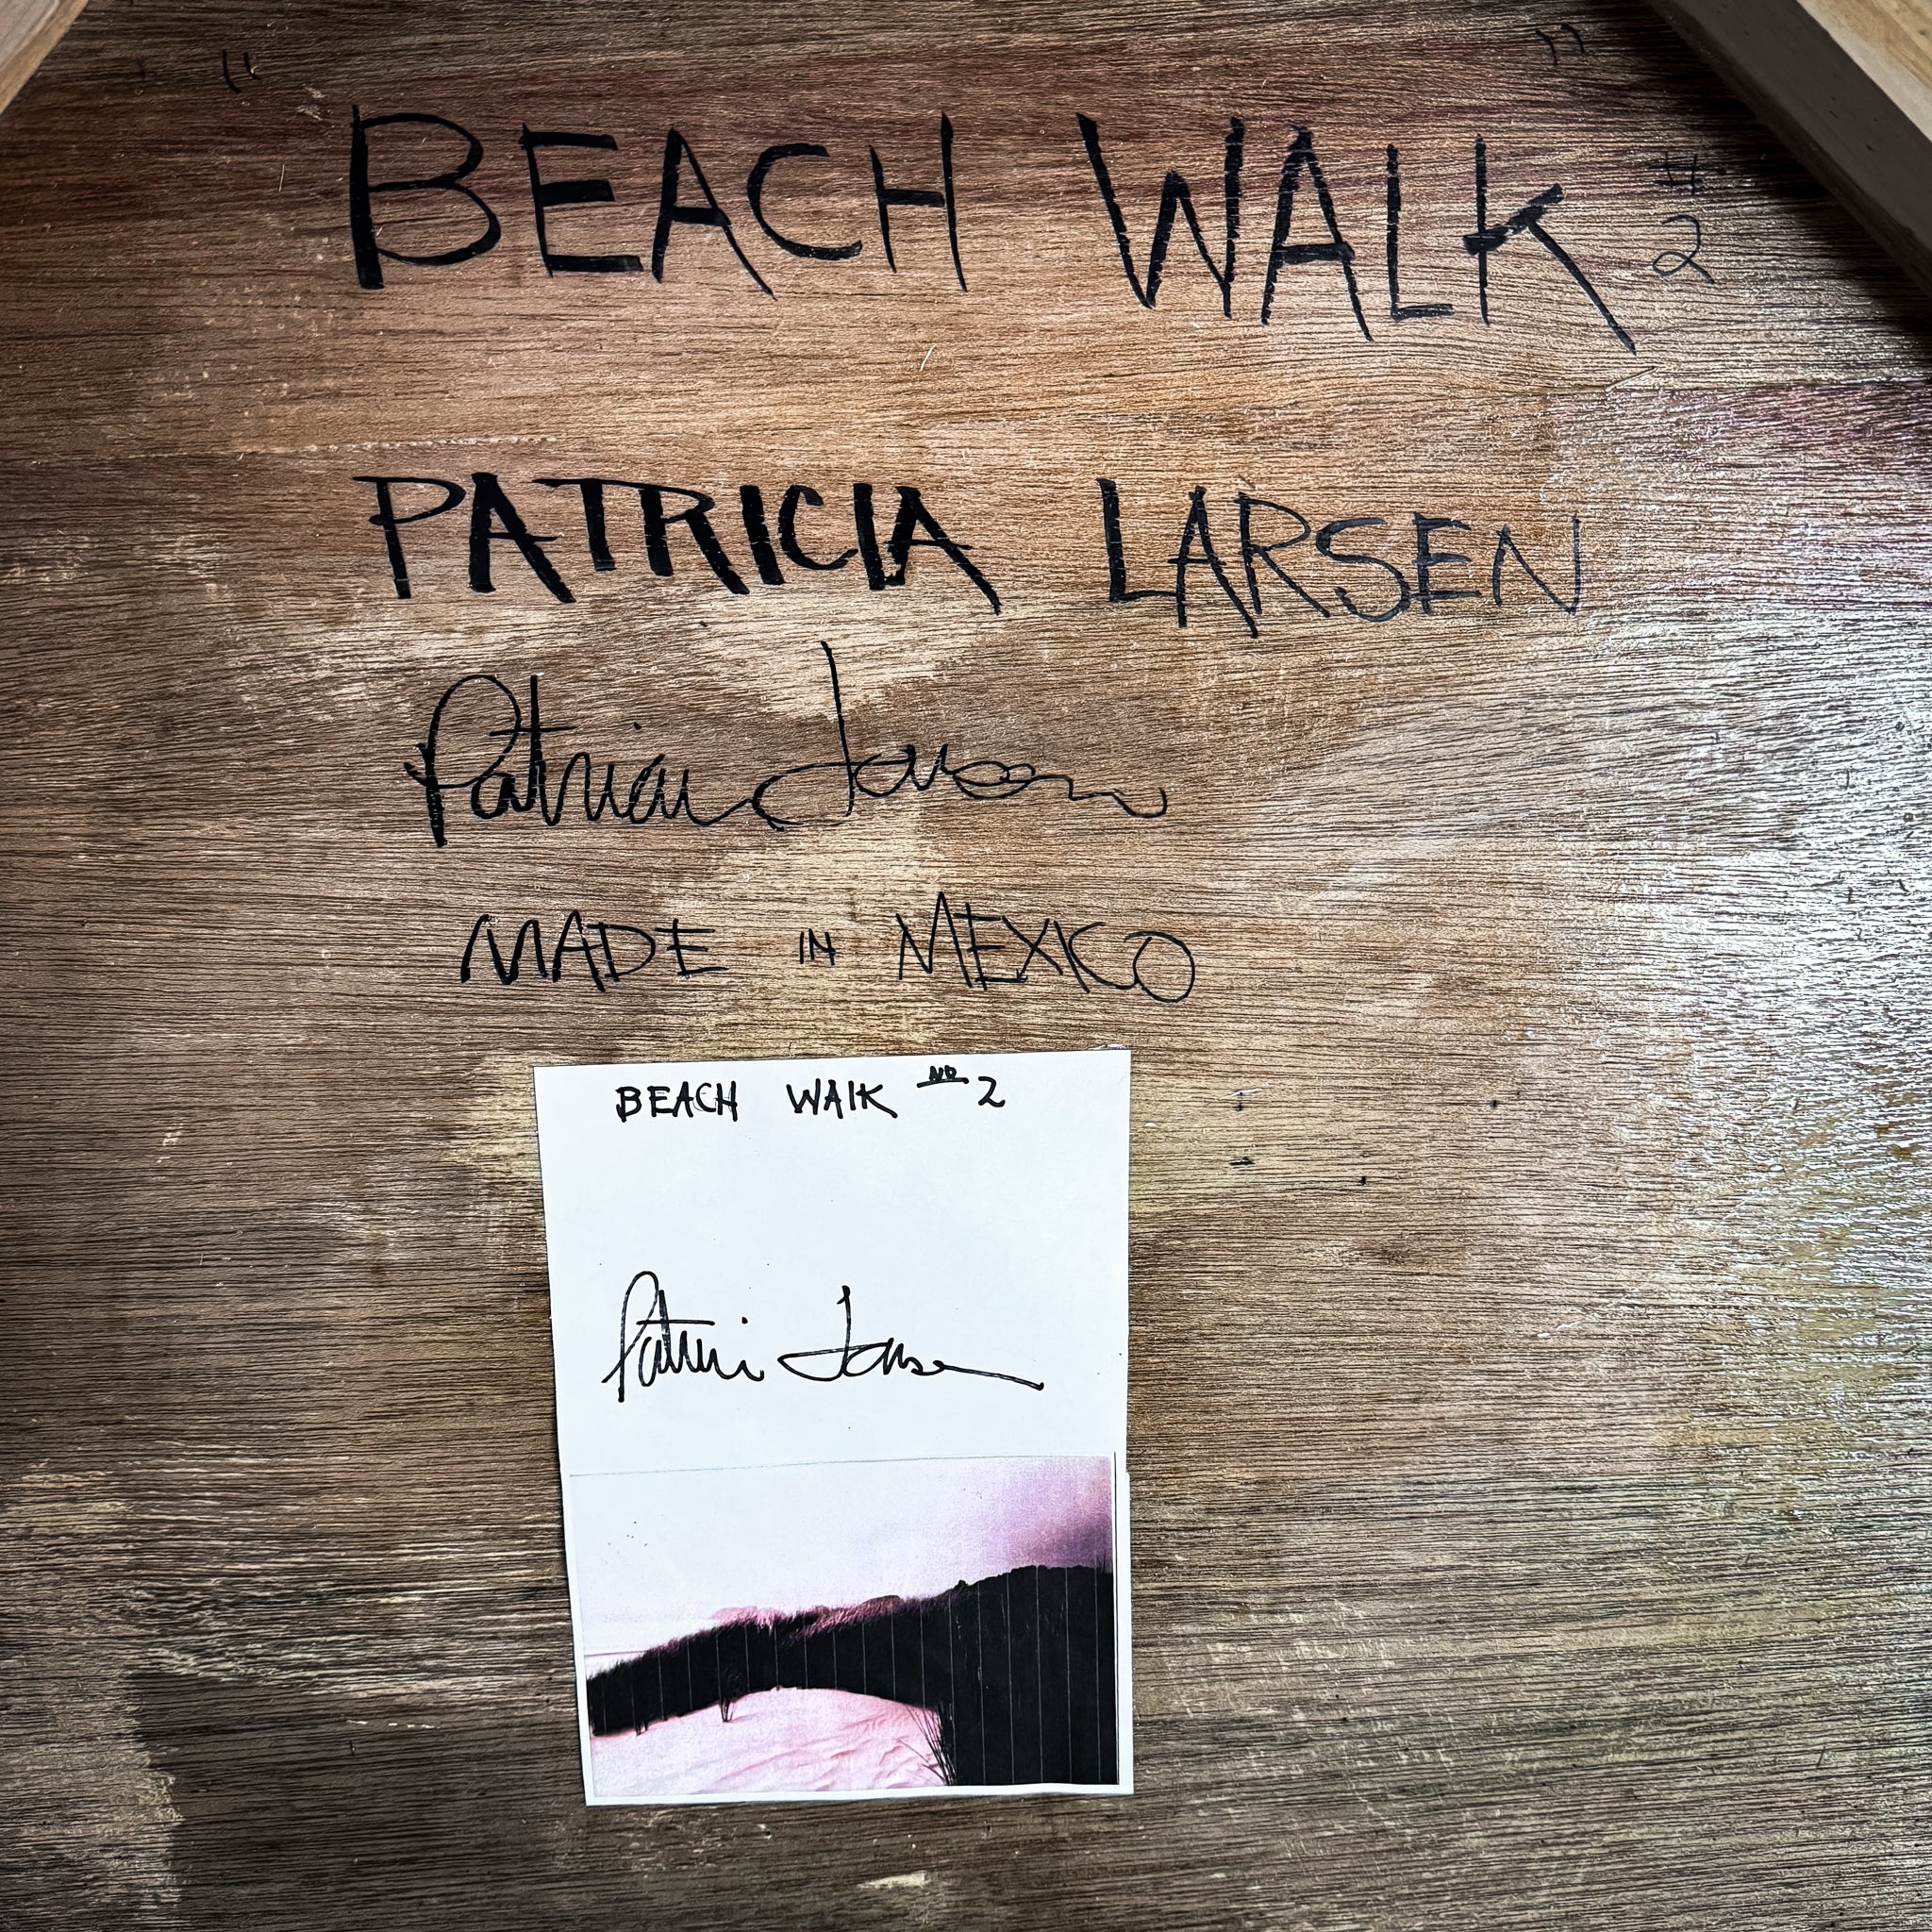 "BEACH WALK #2"
PATRICIA LARSEN
Patricia Larsen
MADE IN MEXICO
BEACH WALK NO 2
Patricia Larsen